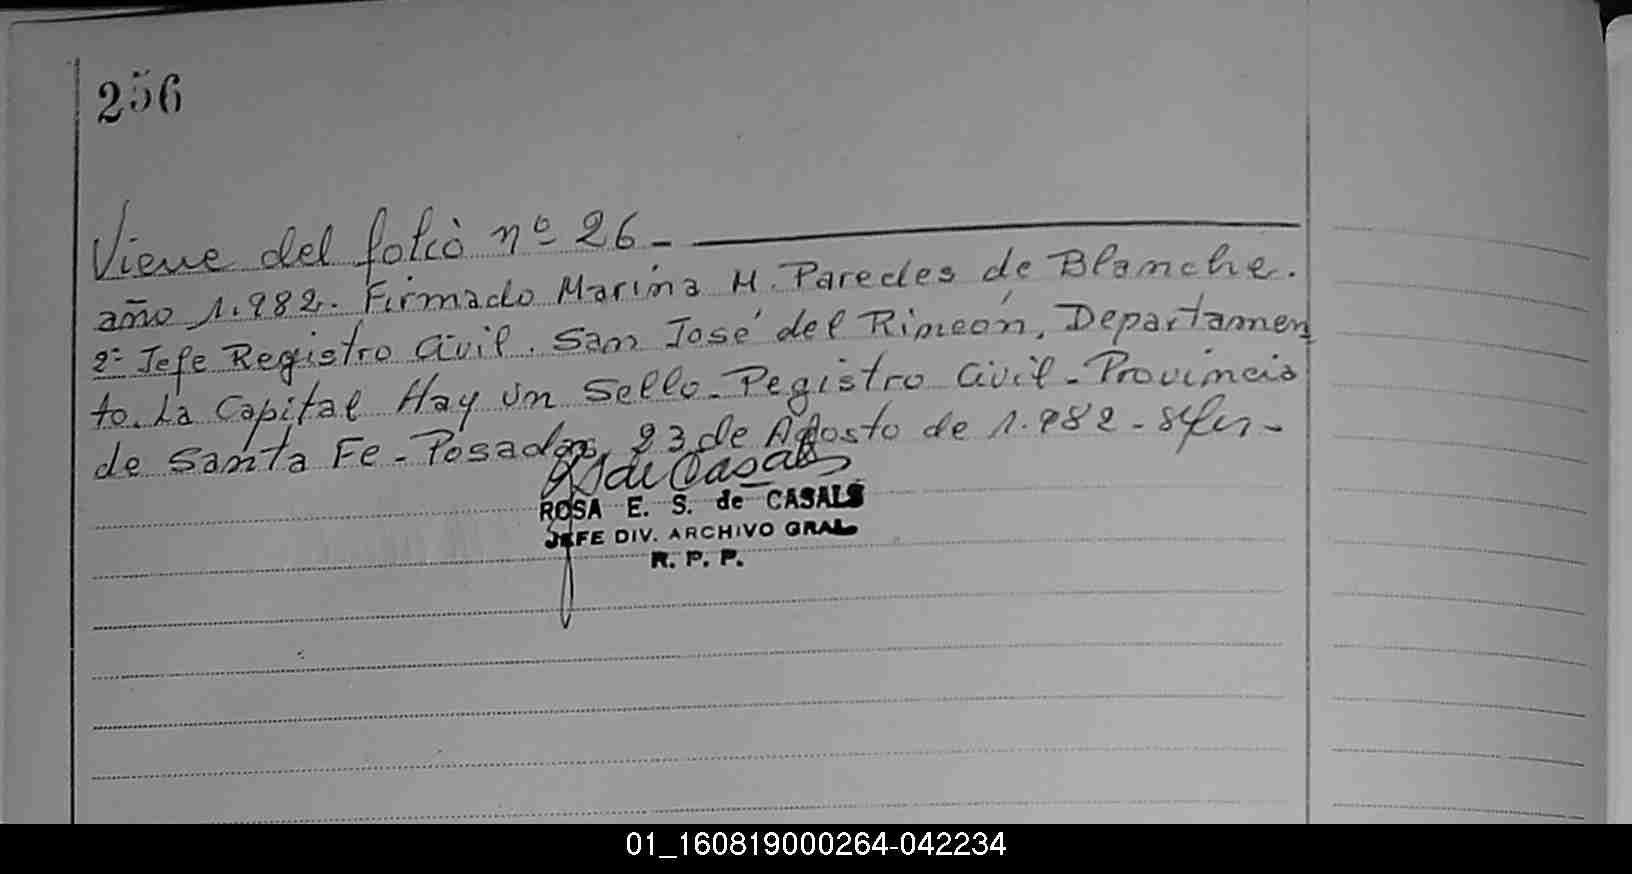 256
Viene del folio nº 26 -
año 1.982. Firmado Marina H. Paredes de Blanche.
2º Jefe Registro Civil. San José del Rincón, Departamen
to. La Capital Hay un Sello - Registro Civil - Provincia
de Santa Fe - Posadas, 23 de Agosto de 1.982 -
RS de Casals
ROSA E. S. de CASALS
JEFE DIV. ARCHIVO GRAL
R. P. P.
01_160819000264-042234